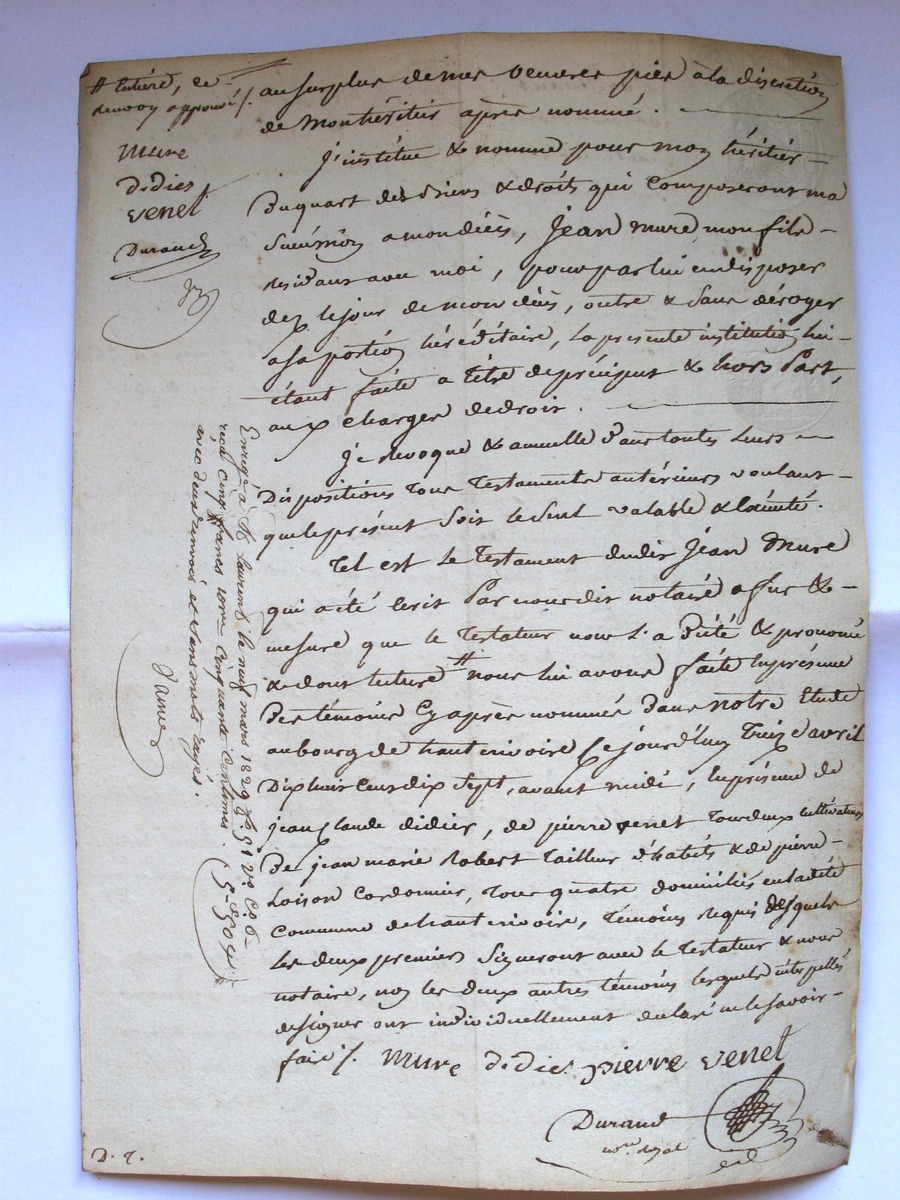 # entière, ce
renvoy approuvé ./.
Mure
Didier
Venet
Durand
au surplus de mes œuvres pies à la discrétion
de mon héritier après nommé.
J'institue & nomme pour mon héritier
Du quart des biens & droits qui composeront ma
Succession a mon décès, Jean Mure mon fils
résidant avec moi, pour par lui en disposer
dez le jour de mon décès, outre & sans déroger
a sa portion héréditaire, la présente institution lui
étant faite a titre de préciput & hors Part,
aux charges de droit.
Je revoque & annulle dans toutes leurs
Dispositions tous Testaments antérieurs voulant
que le présent soit le seul valable & exécuté.
Tel est le Testament dudit Jean Mure
qui a été écrit Par nous dit notaire a fur &
mesure que le Testateur nous l'a Dicté & prononcé
& dont lecture # nous lui avons faite En présence
Des témoins Cy après nommés Dans notre Etude
au bourg de hauterivoire ce jourd'huy Treize avril
Dix huit Cent dix Sept, avant midi, En présence de
jean Claude didier, de pierre venet Tous deux cultivateurs
De jean marie Robert Tailleur d'habits & de pierre
Loison Cordonnier, Tous quatre domiciliés en ladite
Commune de hauterivoire, Témoins requis desquels
les deux premiers Signeront avec le Testateur & nous
notaire, non les deux autres témoins lesquels interpellés
de signer ont individuellement déclaré ne le savoir
faire ./. Mure Didier pierre venet
Durand
nre royal
Enrégé à St laurent le neuf mars 1829 fo 51 vo C 6
reçu cinq francs dixme cinquante centimes.
avec deux renvois et sans mots rayés.
D. 2.